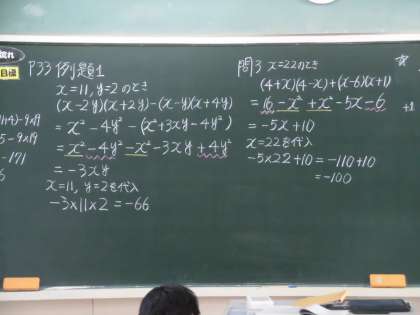 目標
P33 例題1
x=11, y=2のとき
(x-2y)(x+2y)-(x-y)(x+4y)
=x²-4y²-(x²+3xy-4y²)
=x²-4y²-x²-3xy+4y²
=-3xy
x=11, y=2を代入
-3×11×2=-66
問3 x=22のとき
(4+x)(4-x)+(x-6)(x+1)
=16-x²+x²-5x-6
=-5x+10
x=22を代入
-5×22+10=-110+10
=-100
-9×19
5-9×19
-171
6